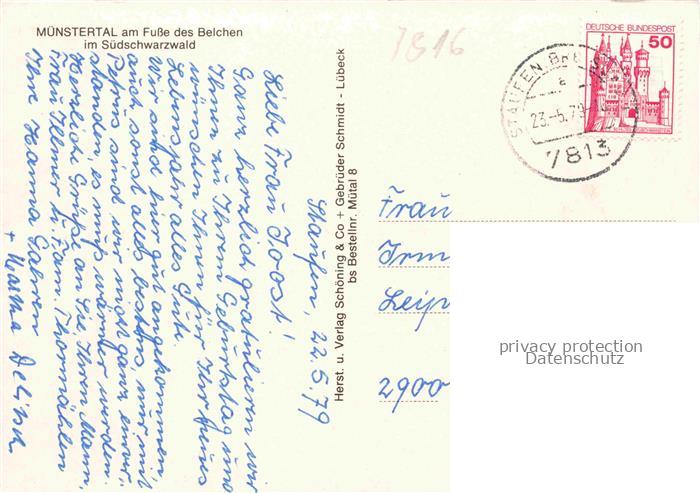 MÜNSTERTAL am Fuße des Belchen
im Südschwarzwald
7816
DEUTSCHE BUNDESPOST
50
STAUFEN, BREISGAU
a
23.-5.79
7813
Herst. u. Verlag Schöning & Co + Gebrüder Schmidt - Lübeck
bs Bestellnr. Mütal 8
Staufen, 22.5.79
Liebe Frau Joost!
Ganz herzlich gratulieren wir
Ihnen zu Ihrem Geburtstag und
wünschen Ihnen für Ihr neues
Lebensjahr alles Gute.
Wir sind hier gut angekommen,
auch sonst alles bestens, nur mit
Petrus sind wir nicht ganz einver-
standen, es muß wärmer werden.
Herzliche Grüße an Sie, Ihren Mann,
Frau u. Fam.
Ihre Hanna
+ Hanna
Frau
Irm
Leip
2900
privacy protection
Datenschutz